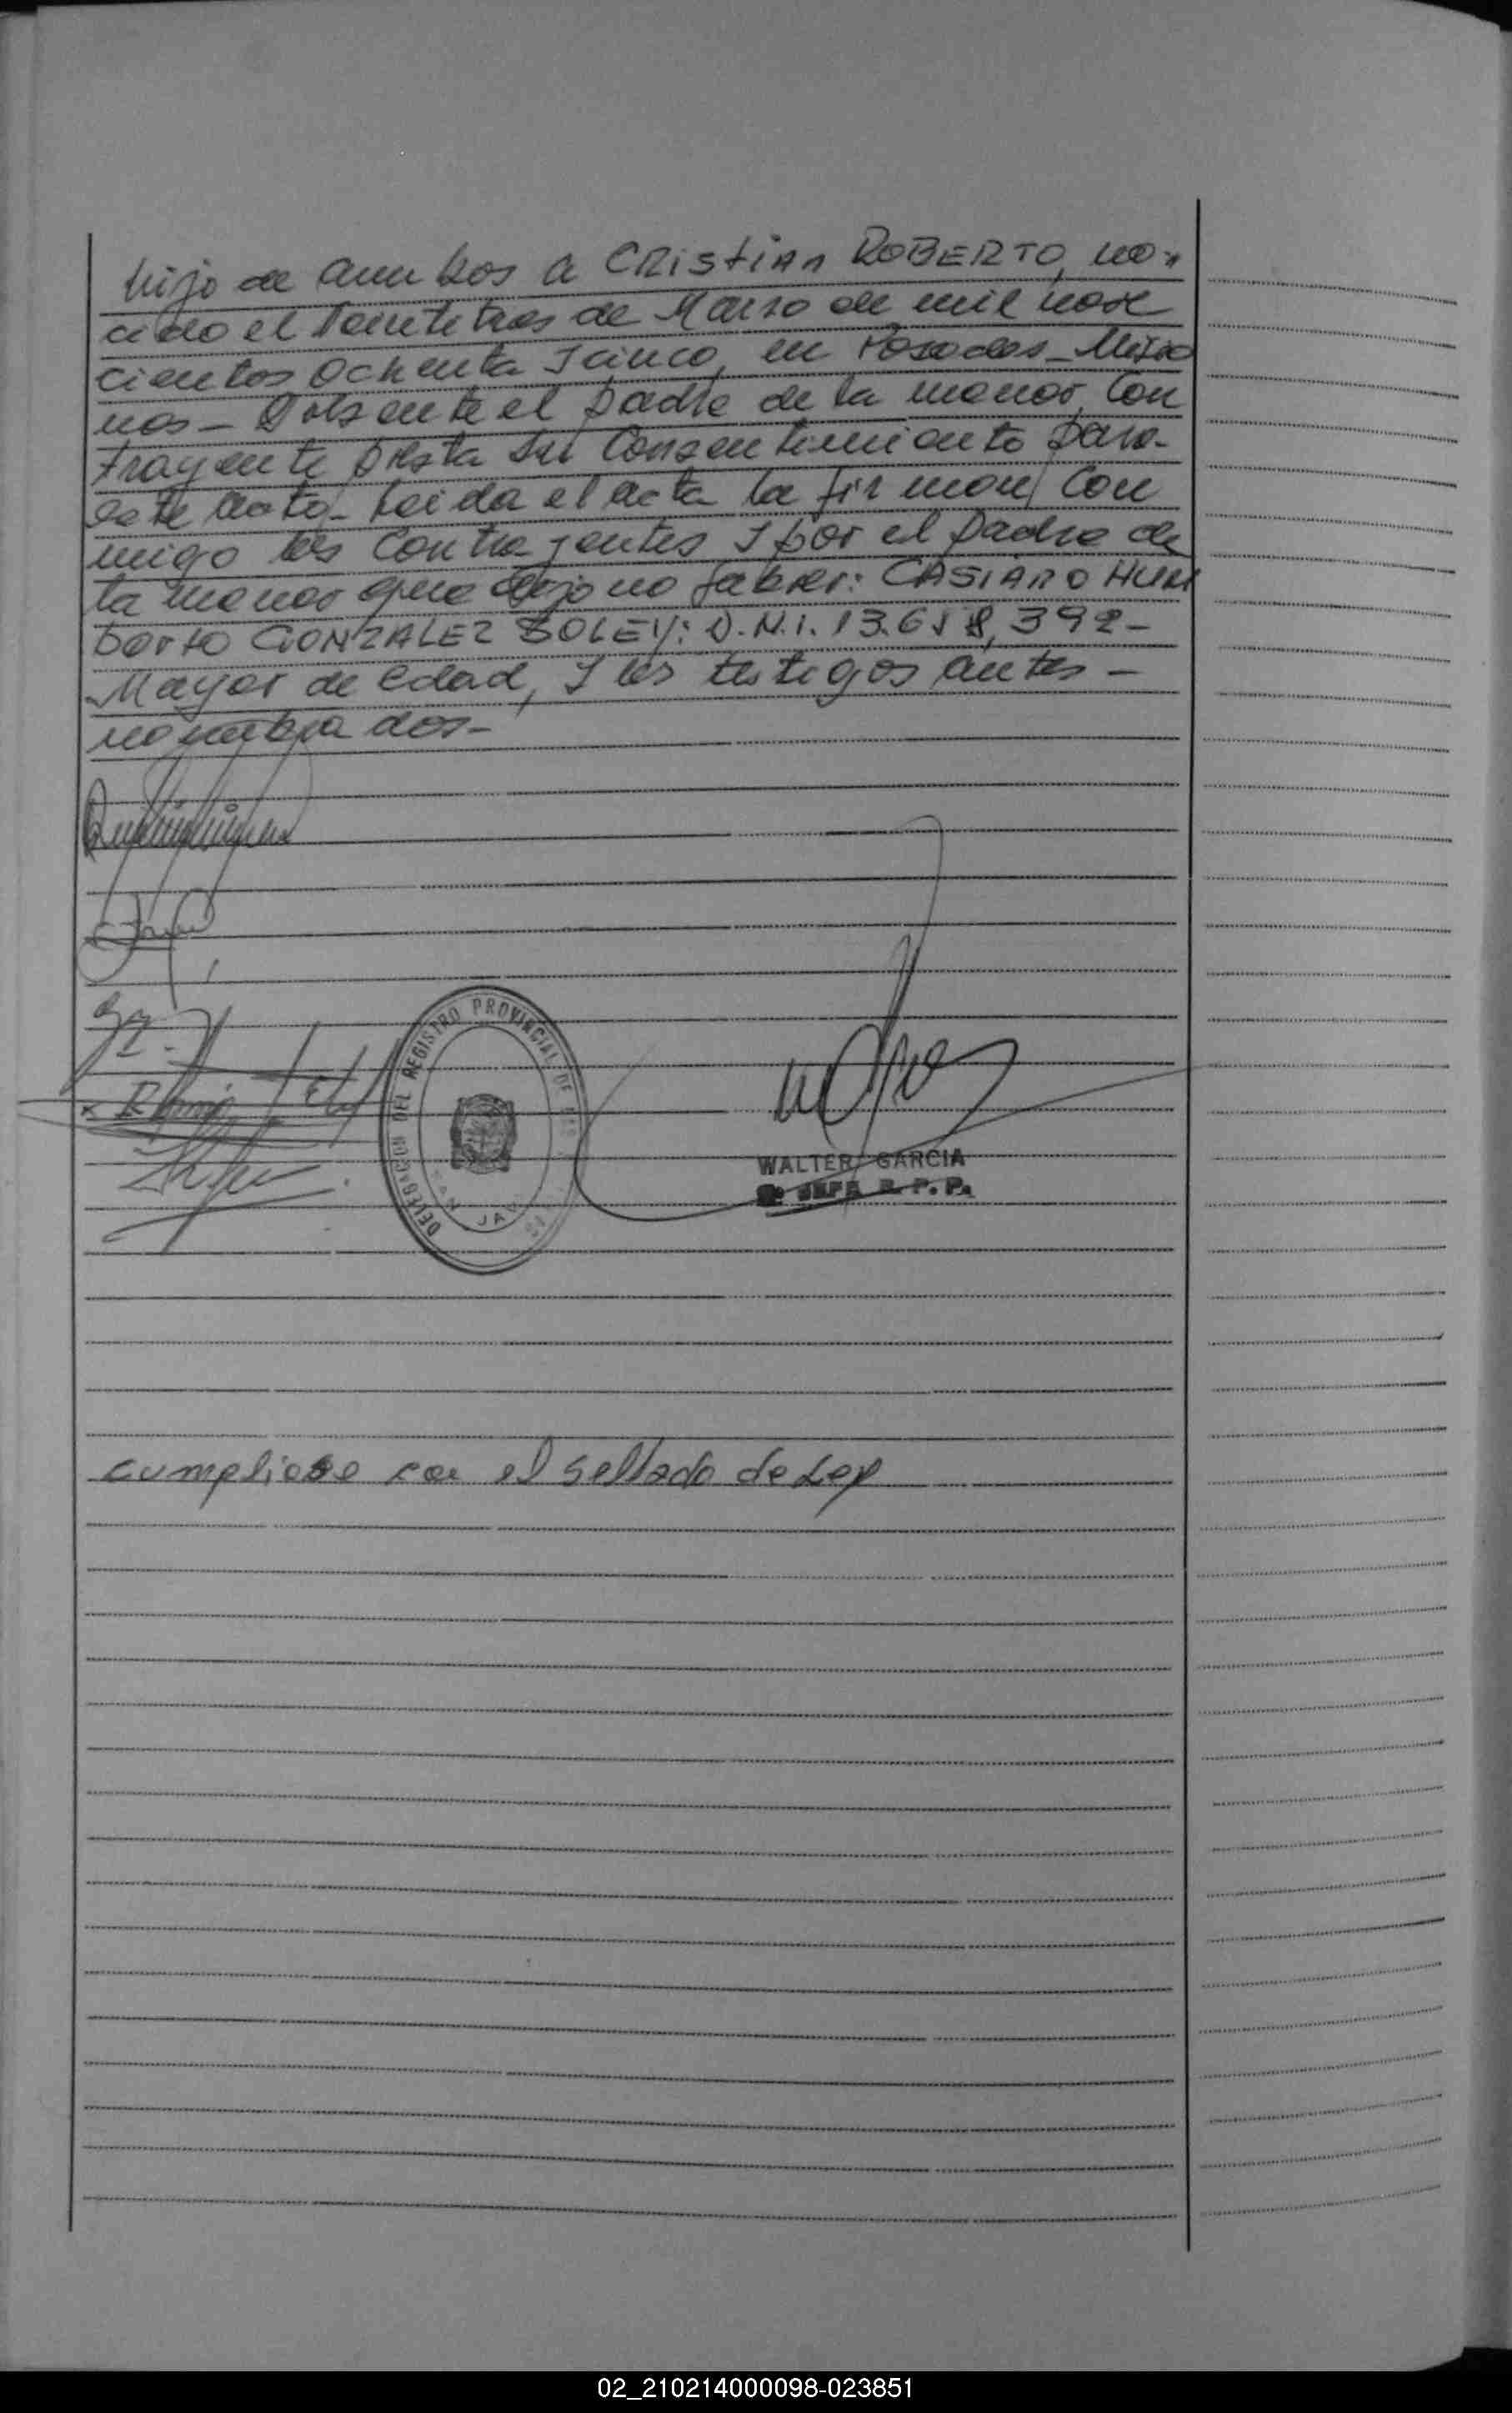 hijo de ambos a CRistiAn ROBERTO, na-
cido el Veintitres de Marzo de mil nove
cientos Ochenta y cinco, en Posadas_Misio
nes_ Presente el padre de la menor, Con
trayente presta su Consentimiento para
este acto_ Leida el acta la firman Con
migo los Contrayentes y por el padre de
la menor que dijo no saber: CASIANO HUM
berto GONZALEZ BOLEY: D.N.I. 13.658,392_
Mayor de edad, y los testigos antes_
nombrados_
DELEGACION DEL REGISTRO PROVINCIAL DE
SAN JAV
WALTER GARCIA
JEFE R. P. P.
cumpliose con el sellado de Ley
02_210214000098-023851